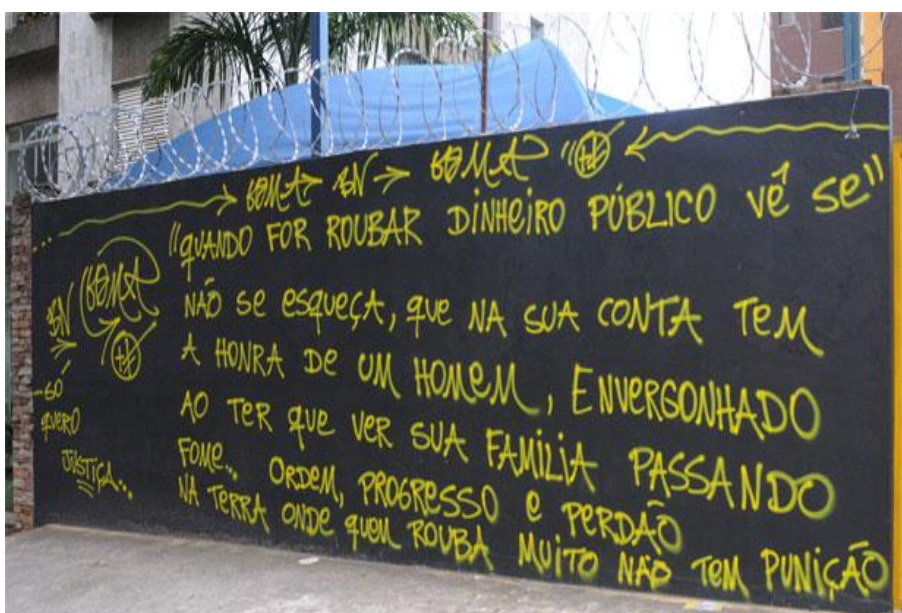 ... GOMA BN GOMA "
"QUANDO FOR ROUBAR DINHEIRO PÚBLICO Vê Se"
NÃO Se esqueÇA, que NA SUA CONTA Tem
A HONRA De UM HOMeM, ENVERGONHADO
AO Ter que VER SUA FAMÍLIA PASSANDO
FOMe... ORDeM, PROGRESSO e PERDÃO
NA TERRA ONDe queM ROUBA MUITO NÃO TeM PUNIÇÃO
BN GOMA
...SÓ
QUERO
JUSTIÇA...